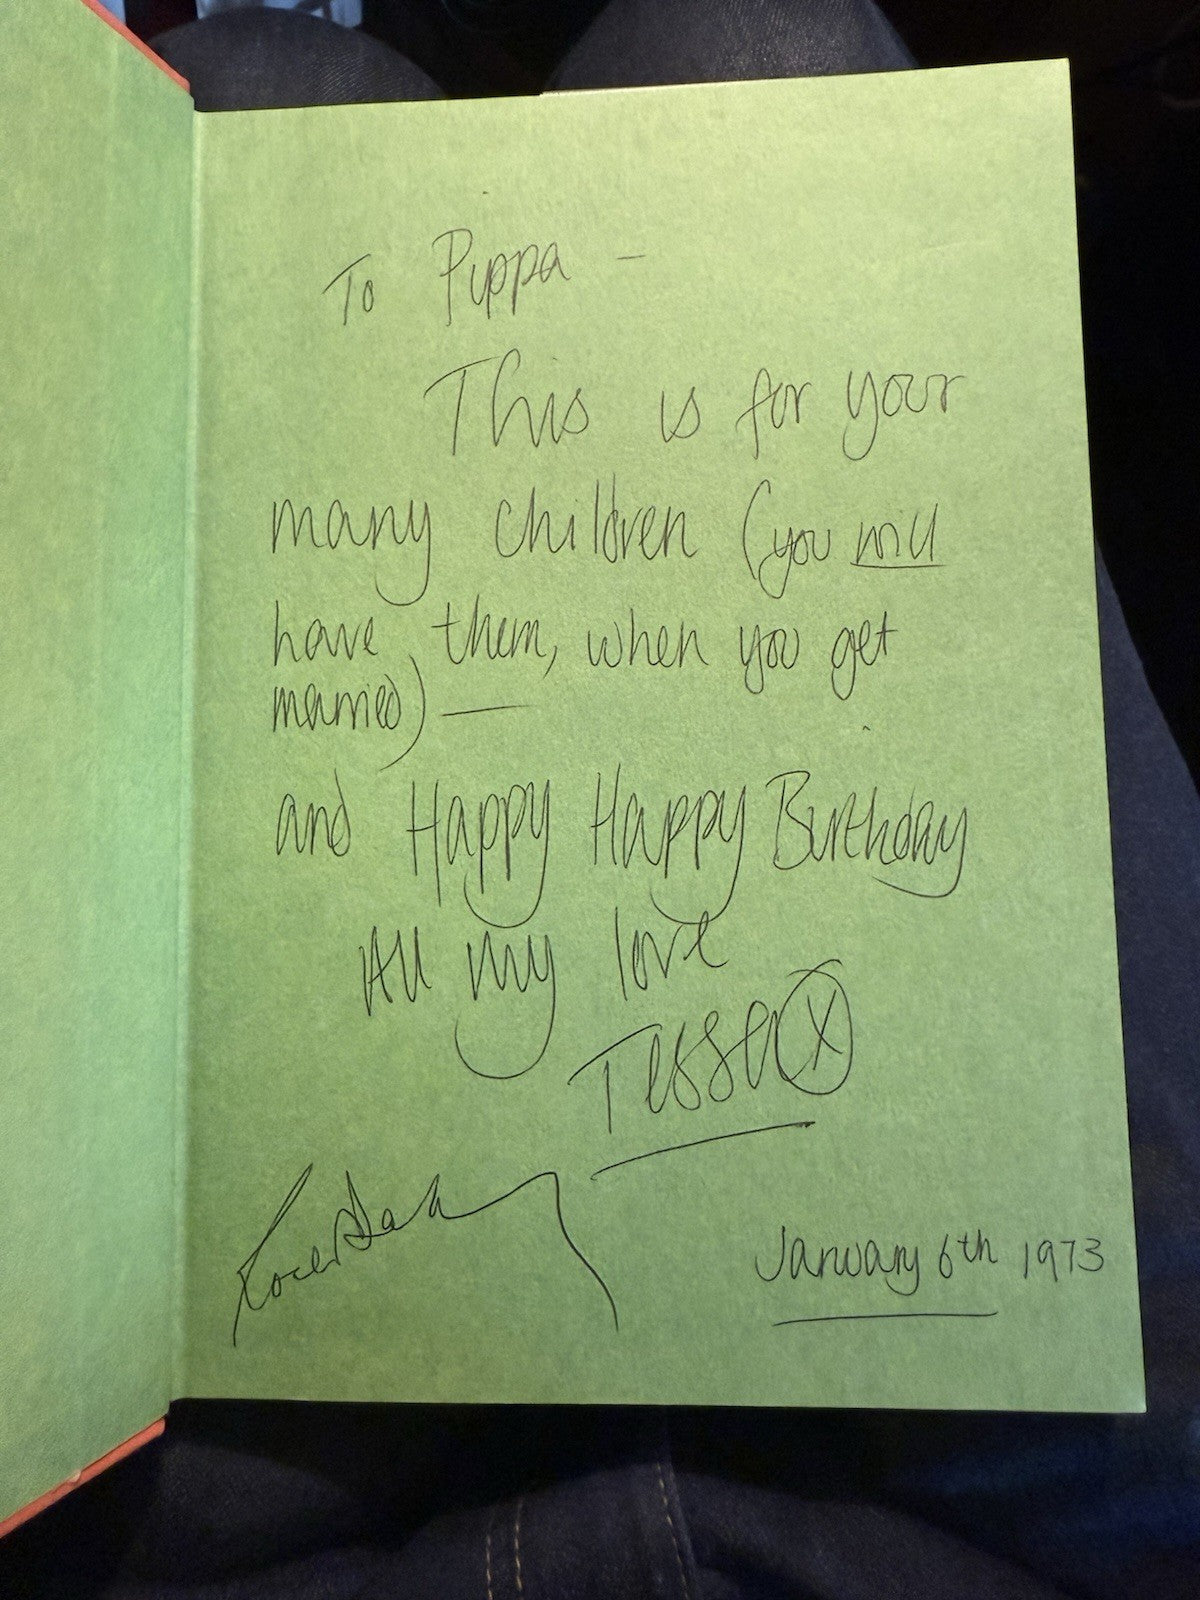 To Pippa -
This is for your
many children (you will
have them, when you get
married) —
and Happy Happy Birthday
All my love
Tessa X
Roald Dahl
January 6th 1973